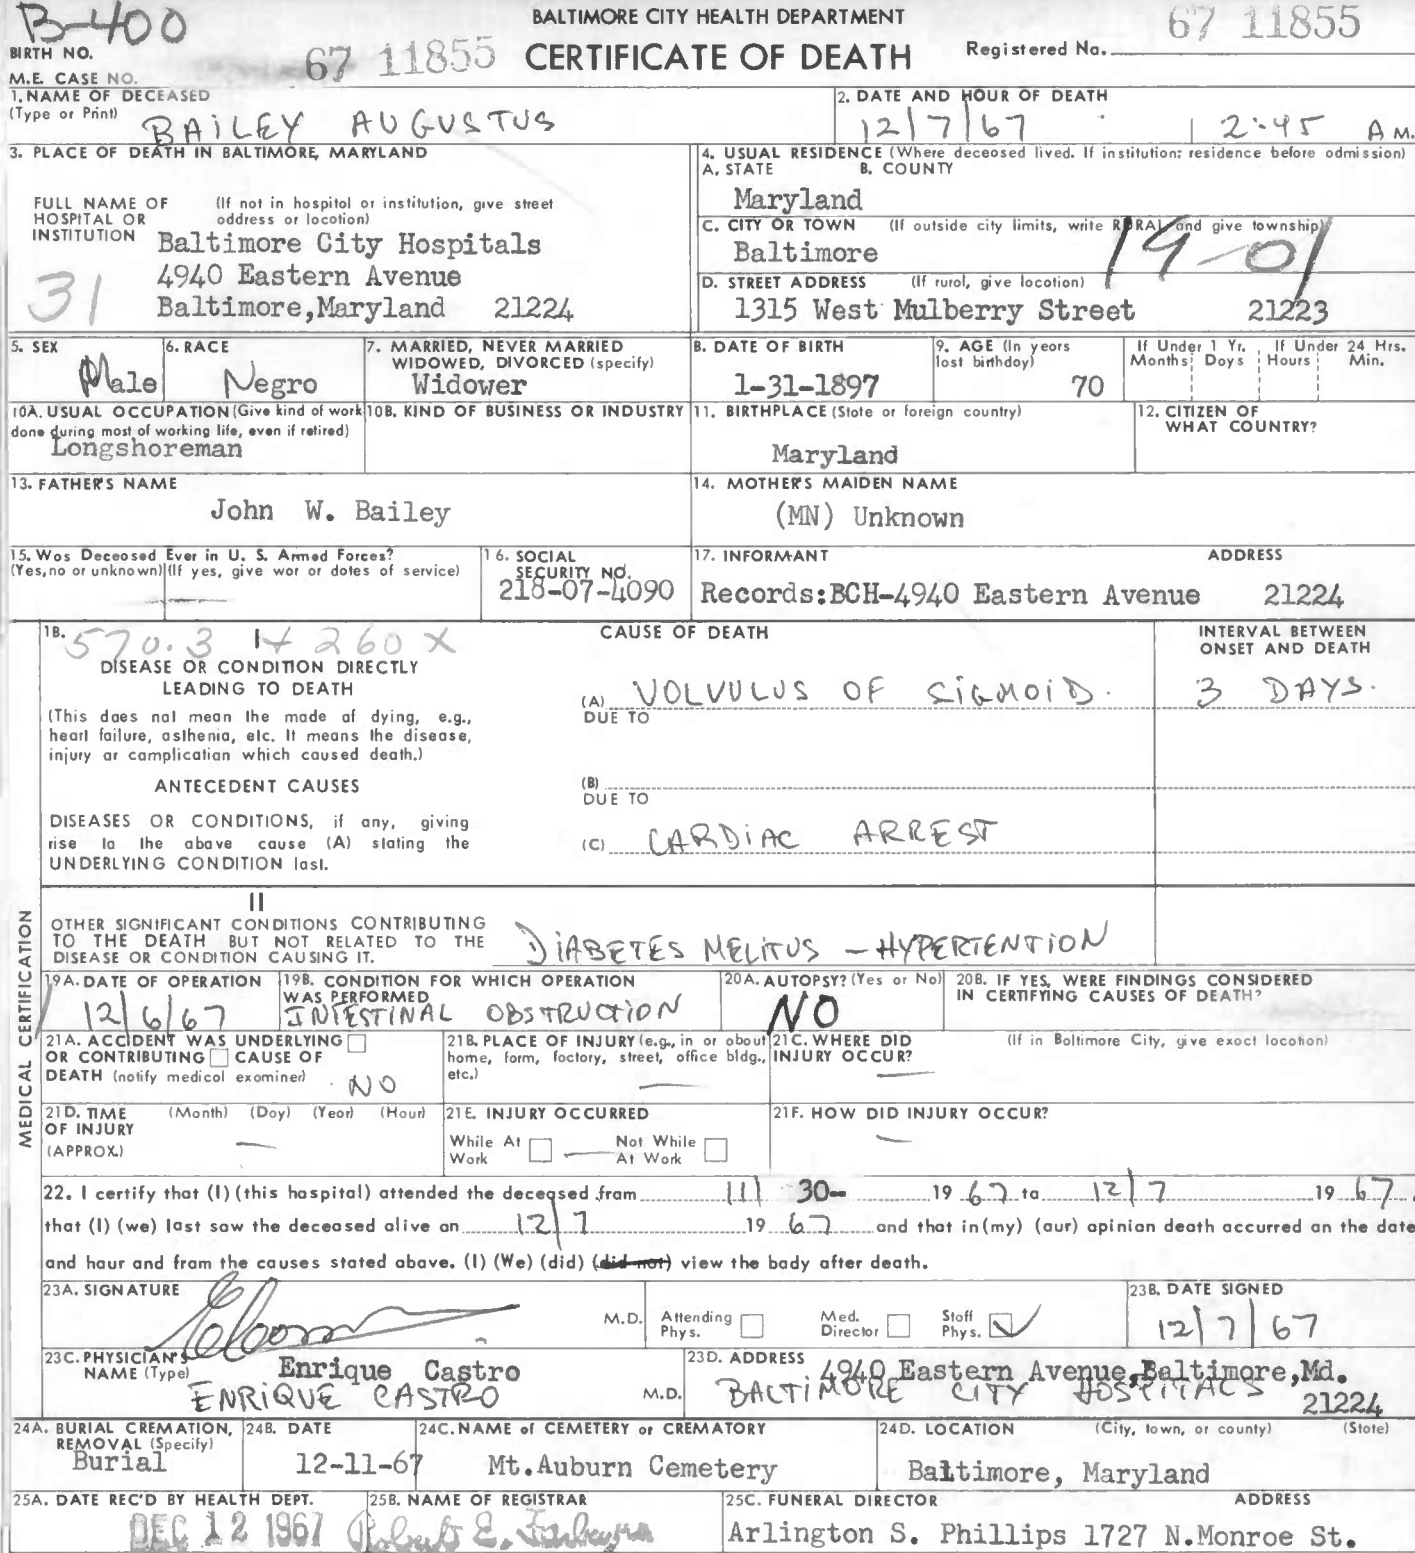 B-400
BALTIMORE CITY HEALTH DEPARTMENT
67 11855
BIRTH NO.
67 11855
CERTIFICATE OF DEATH
Registered No.
M.E. CASE NO.
1. NAME OF DECEASED
(Type or Print)
BAILEY AUGUSTUS
2. DATE AND HOUR OF DEATH
12/7/67 2:45 A M.
3. PLACE OF DEATH IN BALTIMORE, MARYLAND
FULL NAME OF HOSPITAL OR INSTITUTION
(If not in hospital or institution, give street address or location)
Baltimore City Hospitals
4940 Eastern Avenue
Baltimore,Maryland 21224
31
4. USUAL RESIDENCE (Where deceased lived. If institution: residence before admission)
A. STATE B. COUNTY
Maryland
C. CITY OR TOWN (If outside city limits, write RURAL and give township)
Baltimore
19-01
D. STREET ADDRESS (If rural, give location)
1315 West Mulberry Street 21223
5. SEX
Male
6. RACE
Negro
7. MARRIED, NEVER MARRIED
WIDOWED, DIVORCED (specify)
Widower
8. DATE OF BIRTH
1-31-1897
9. AGE (In years
last birthday)
70
If Under 1 Yr. If Under 24 Hrs.
Months Days Hours Min.
10A. USUAL OCCUPATION (Give kind of work
done during most of working life, even if retired)
Longshoreman
10B. KIND OF BUSINESS OR INDUSTRY
11. BIRTHPLACE (State or foreign country)
Maryland
12. CITIZEN OF
WHAT COUNTRY?
13. FATHER'S NAME
John W. Bailey
14. MOTHER'S MAIDEN NAME
(MN) Unknown
15. Was Deceased Ever in U. S. Armed Forces?
(Yes,no or unknown) (If yes, give war or dates of service)
16. SOCIAL
SECURITY NO.
218-07-4090
17. INFORMANT ADDRESS
Records:BCH-4940 Eastern Avenue 21224
18. 570.3 I + 260 X
CAUSE OF DEATH
INTERVAL BETWEEN
ONSET AND DEATH
DISEASE OR CONDITION DIRECTLY
LEADING TO DEATH
(A) VOLVULUS OF SIGMOID. 3 DAYS.
DUE TO
(This does not mean the mode of dying, e.g.,
heart failure, asthenia, etc. It means the disease,
injury or complication which caused death.)
ANTECEDENT CAUSES
(B)
DUE TO
DISEASES OR CONDITIONS, if any, giving
rise to the above cause (A) stating the
UNDERLYING CONDITION last.
(C) CARDIAC ARREST
MEDICAL CERTIFICATION
II
OTHER SIGNIFICANT CONDITIONS CONTRIBUTING
TO THE DEATH BUT NOT RELATED TO THE
DISEASE OR CONDITION CAUSING IT.
DIABETES MELITUS - HYPERTENTION
19A. DATE OF OPERATION
12/6/67
19B. CONDITION FOR WHICH OPERATION
WAS PERFORMED
INTESTINAL OBSTRUCTION
20A. AUTOPSY? (Yes or No)
NO
20B. IF YES, WERE FINDINGS CONSIDERED
IN CERTIFYING CAUSES OF DEATH?
21A. ACCIDENT WAS UNDERLYING
OR CONTRIBUTING CAUSE OF
DEATH (notify medical examiner)
NO
21B. PLACE OF INJURY (e.g., in or about
home, farm, factory, street, office bldg.,
etc.)
21C. WHERE DID
INJURY OCCUR?
(If in Baltimore City, give exact location)
21D. TIME (Month) (Day) (Year) (Hour)
OF INJURY
(APPROX.)
21E. INJURY OCCURRED
While At Work
Not While At Work
21F. HOW DID INJURY OCCUR?
22. I certify that (I) (this hospital) attended the deceased from 11/ 30- 19 67 to 12/7 19 67,
that (I) (we) last saw the deceased alive on 12/7 19 67 and that in (my) (our) opinion death occurred on the date
and hour and from the causes stated above. (I) (We) (did) (did not) view the body after death.
23A. SIGNATURE
M.D.
Attending Phys.
Med. Director
Staff Phys.
23B. DATE SIGNED
12/7/67
23C. PHYSICIAN'S
NAME (Type)
Enrique Castro
ENRIQUE CASTRO M.D.
23D. ADDRESS
4940 Eastern Avenue,Baltimore,Md.
BALTIMORE CITY HOSPITALS
21224
24A. BURIAL CREMATION,
REMOVAL (Specify)
Burial
24B. DATE
12-11-67
24C. NAME of CEMETERY or CREMATORY
Mt.Auburn Cemetery
24D. LOCATION (City, town, or county) (State)
Baltimore, Maryland
25A. DATE REC'D BY HEALTH DEPT.
DEC 12 1967
25B. NAME OF REGISTRAR
Robert E. Farber
25C. FUNERAL DIRECTOR ADDRESS
Arlington S. Phillips 1727 N.Monroe St.